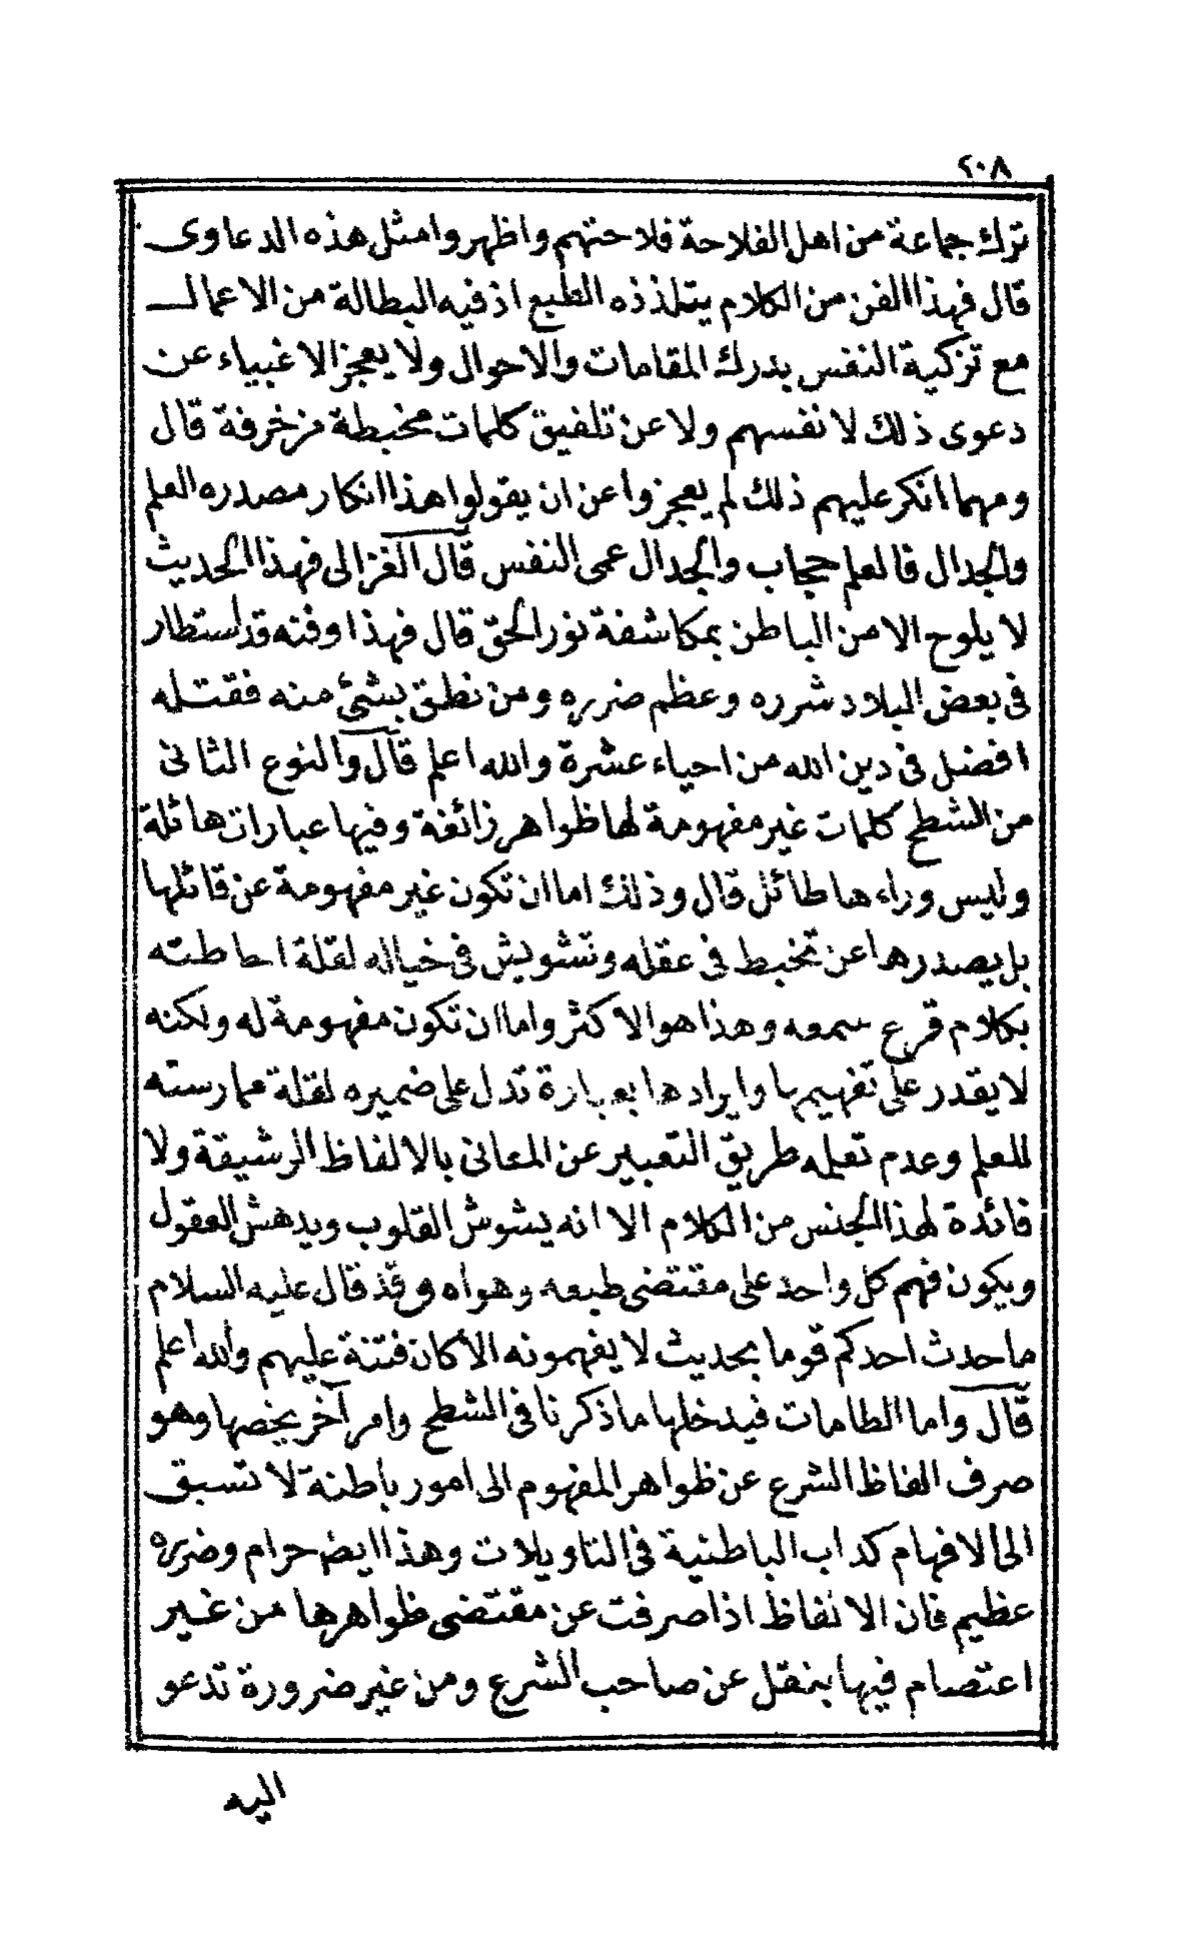 ٢٠٨
ترك جماعة من اهل الفلاحة فلاحتهم واظهروا مثل هذه الدعاوى
قال فهذا الفن من الكلام يتلذذه الطبع اذ فيه البطالة من الاعمال
مع تزكية النفس بدرك المقامات والاحوال ولا يعجز الاغبياء عن
دعوى ذلك لانفسهم ولا عن تلفيق كلمات مخبطة مزخرفة قال
ومهما انكر عليهم ذلك لم يعجزوا عن ان يقولوا هذا انكار مصدره العلم
والجدال فالعلم حجاب والجدال عمى النفس قال الغزالى فهذا الحديث
لا يلوح الا من الباطن بمكاشفة نور الحق قال فهذا وفنه قد استطار
فى بعض البلاد شرره وعظم ضرره ومن نطق بشئ منه فقتله
افضل فى دين الله من احياء عشرة والله اعلم قال والنوع الثانى
من الشطح كلمات غير مفهومة لها ظواهر زائغة وفيها عبارات هائلة
وليس وراءها طائل قال وذلك اما ان تكون غير مفهومة عن قائلها
بل يصدرها عن تخبط فى عقله وتشويش فى خياله لقلة احاطته
بكلام قرع سمعه وهذا هو الاكثر واما ان تكون مفهومة له ولكنه
لا يقدر على تفهيمها وايرادها بعبارة تدل على ضميره لقلة ممارسته
للعلم وعدم تعلمه طريق التعبير عن المعانى بالالفاظ الرشيقة ولا
فائدة لهذا الجنس من الكلام الا انه يشوش القلوب ويدهش العقول
ويكون فهم كل واحد على مقتضى طبعه وهواه وقد قال عليه السلام
ما حدث احدكم قوما بحديث لا يفهمونه الا كان فتنة عليهم والله اعلم
قال واما الطامات فيدخلها ما ذكرنا فى الشطح وامر آخر يخصها وهو
صرف الفاظ الشرع عن ظواهر المفهوم الى امور باطنة لا تسبق
الى الافهام كداب الباطنية فى التاويلات وهذا ايض حرام وضرره
عظيم فان الالفاظ اذا صرفت عن مقتضى ظواهرها من غير
اعتصام فيها بنقل عن صاحب الشرع ومن غير ضرورة تدعو
اليه